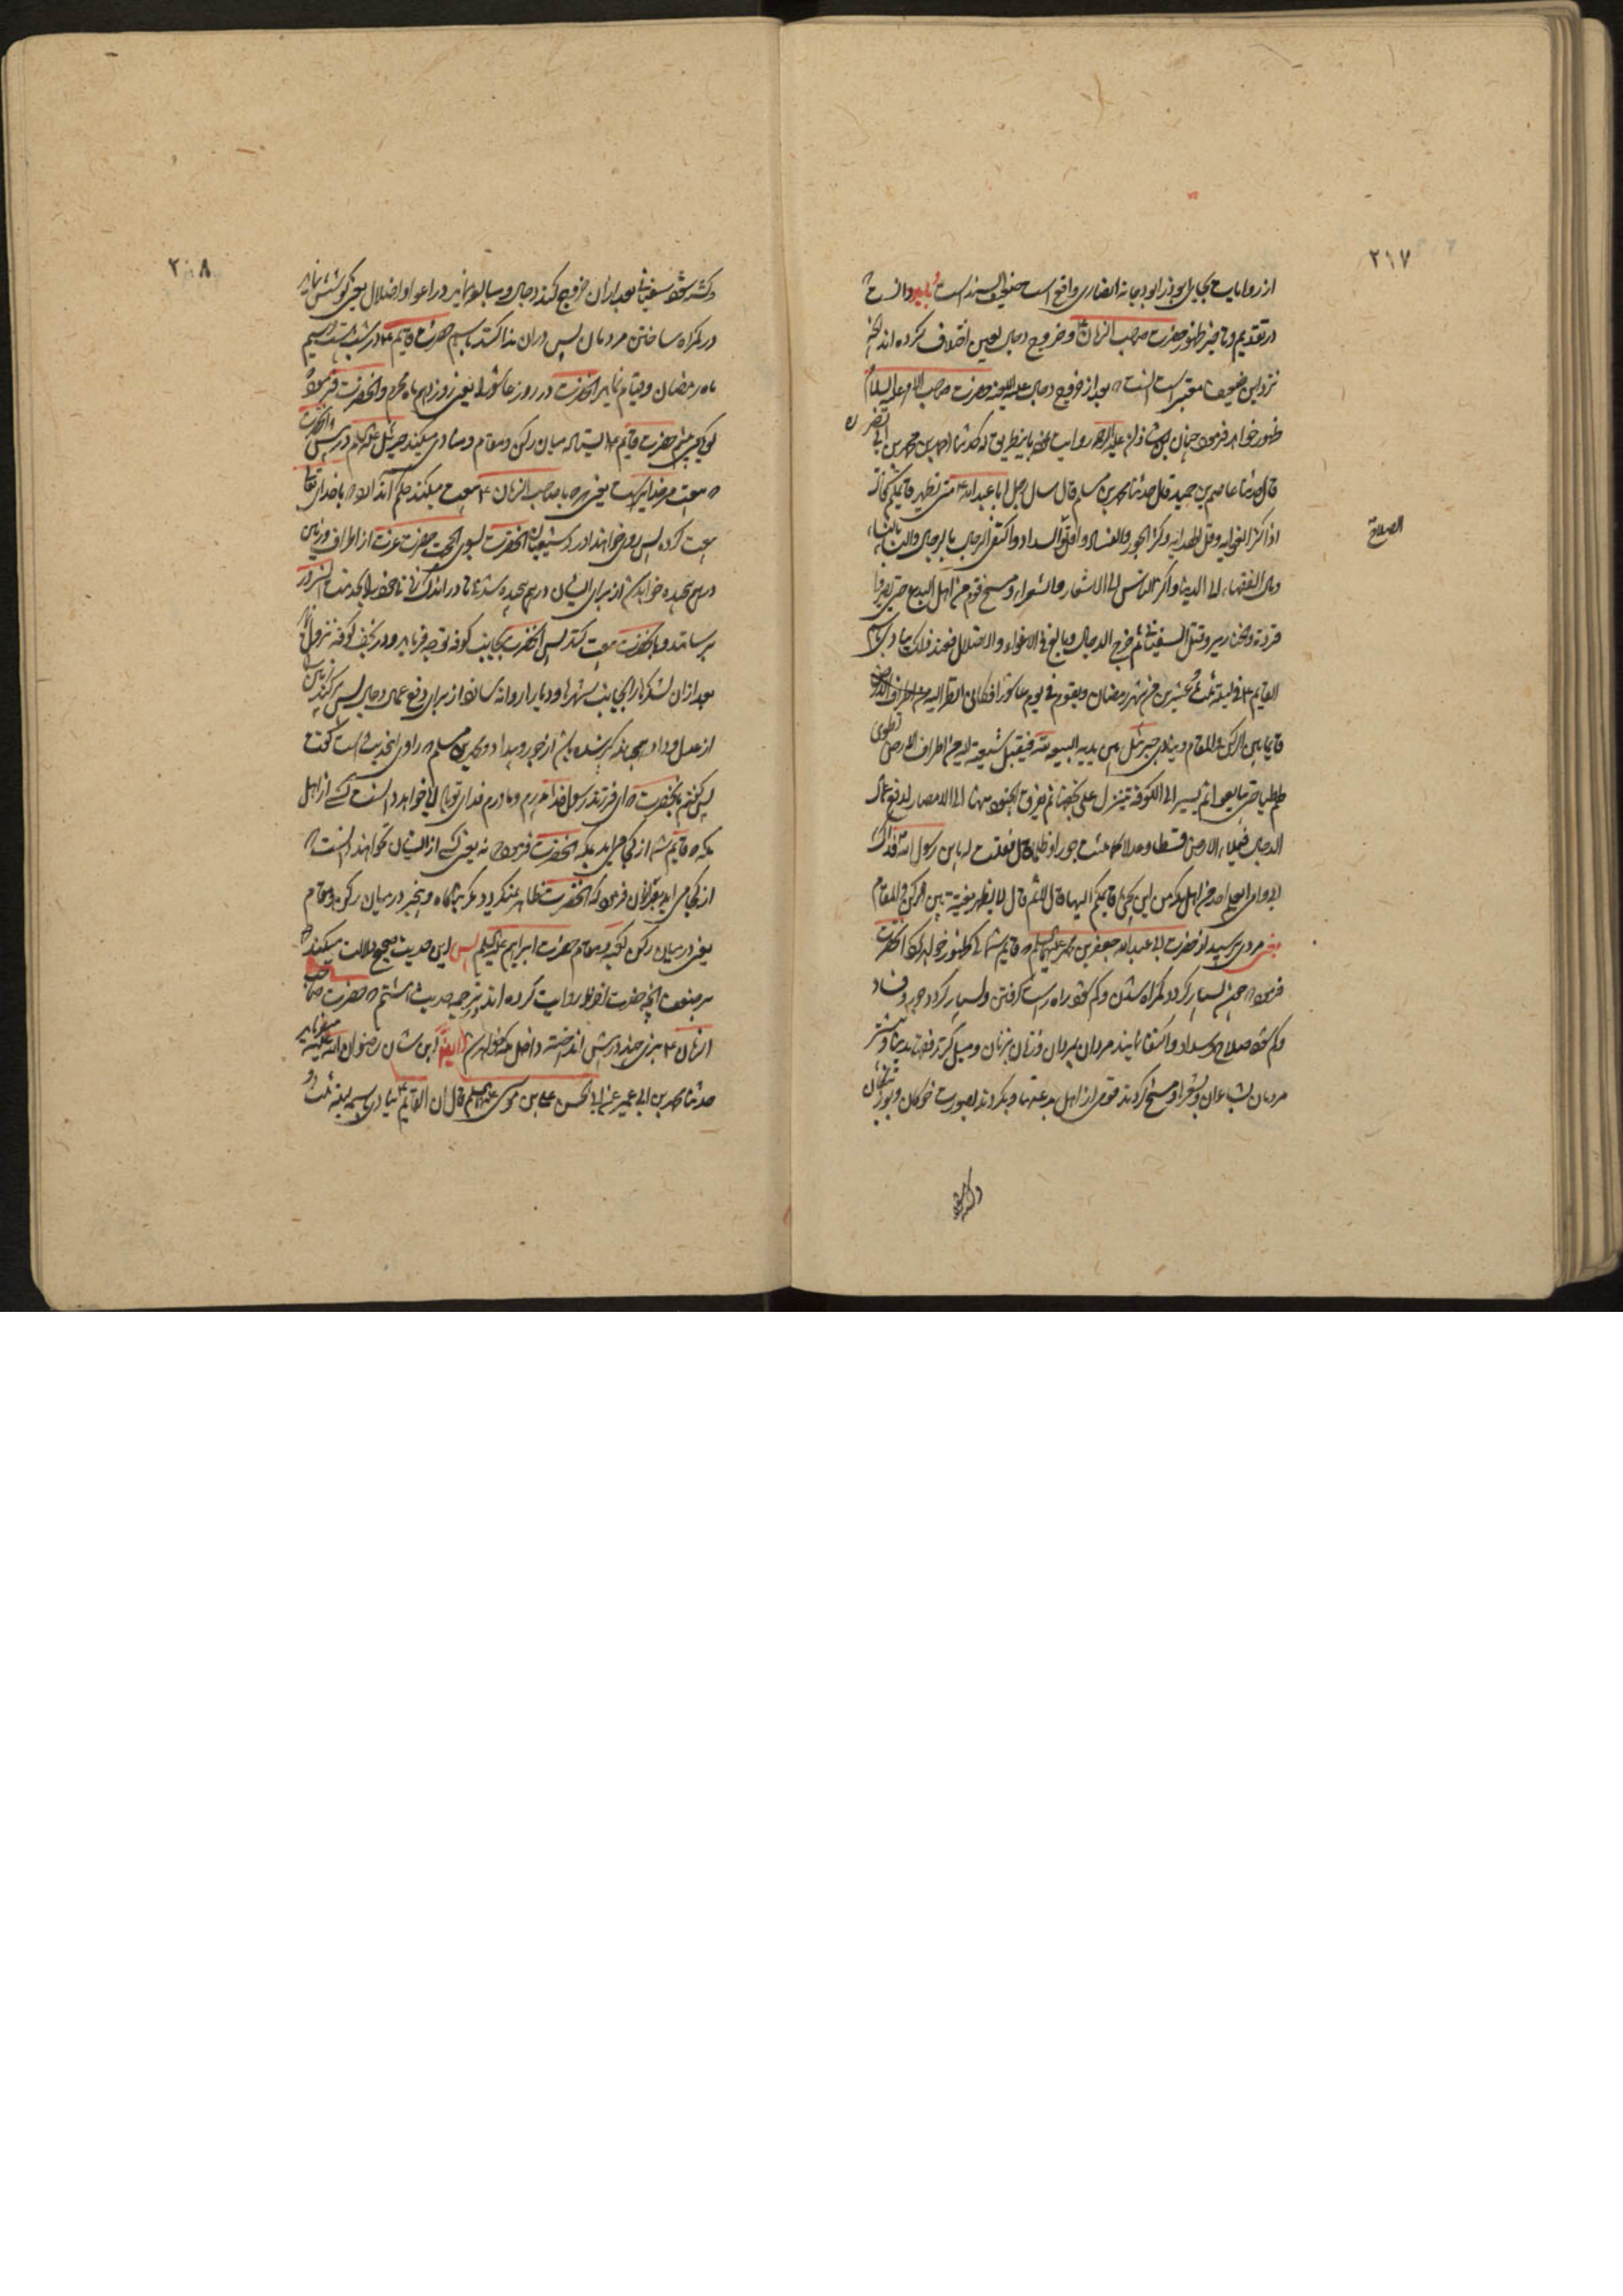 ٢١٧
از روایات بجای ابوذر ابودجانه انصاری واقع است ضعیف السند است باید دانست که
در تقدیم و تاخیر ظهور حضرت صاحب الزمان و خروج دجال لعین اختلاف کرده اند آنچه
نزد این ضعیف معتبر است آنست که بعد از خروج دجال علیه اللعنه حضرت صاحب الامر علیه السلام
ظهور خواهد فرمود چنان فضل بن شاذان علیه الرحمه روایت نموده باینطریق که حدثنا احمد بن محمد بن ابی نصر
قال حدثنا عاصم بن حمید قال حدثنا محمد بن مسلم قال سال رجل ابا عبد الله متی یظهر قائمکم قال
اذا کثر الغوایه و قل الهدایه و کثر الجور و الفساد و اقل الصلاح و السداد و اکتفی الرجال بالرجال و النساء بالنساء
و مال الفقهاء الی الدنیا و اکثر الناس الی الاشعار و الشعراء و مسخ قوم من اهل البدع حتی یصیروا
قردة و خنازیر و قتل السفیانی ثم خرج الدجال و بالغ فی الاغواء و الاضلال فعند ذلک ینادی باسم
القایم فی لیلة ثلث و عشرین من شهر رمضان و یقوم فی یوم عاشورا فکانی انظر الیه
قایما بین الرکن و المقام و ینادی جبرئیل بین یدیه البیعة لله فیقبل شیعته الیه من اطراف الارض تطوی
لهم طیا حتی یبایعوا ثم یسیر الی الکوفة فینزل علی نجفها ثم یفرق الجنود منها الی الامصار لدفع عمال
الدجال فیملاء الارض قسطا و عدلا کما ملئت جورا و ظلما قال فقلت له یابن رسول الله فداک
ابی و امی ایعلم احد من اهل مکة من این یجئ قایمکم الیها قال لا ثم قال لا یظهر الا بغتة بین الرکن و المقام
یعنی مردی پرسید از حضرت ابی عبد الله جعفر بن محمد علیهما السلام که قایم شما کی ظهور خواهد کرد آنحضرت
فرمود که چون بسیار گردد گمراه شدن و کم شود راه راست گرفتن و بسیار گردد جور و فساد
و کم شود صلاح و سداد و اکتفا نمایند مردان بمردان و زنان بزنان و میل کنند فقها بدنیا و بیشتر
مردمان بشاعران و شعرا و مسخ گردند قومی از اهل بدعتها و بگردند بصورت خوکان و بوزینگان
الصلاح
و کشته شود
٢٠٨
و کشته شود سفیانی بعد از آن خروج کند دجال و مبالغه نماید در اغوا و اضلال یعنی کوشش نماید
در گمراه ساختن مردمان پس در آن ندا کنند باسم حضرت قایم ع در شب بیست و سیم
ماه رمضان و قیام نماید آنحضرت در روز عاشورا یعنی روز دهم ماه محرم و آنحضرت فرمود
گویا می بینم حضرت قایم ع ایستاده میان رکن و مقام و منادی میکند جبرئیل علیه السلام در پیش آنحضرت
که بیعت مر خدا یراست یعنی هر که با صاحب الزمان ع بیعت میکند حکم آن دارد که با خدای تعالی
بیعت کرده پس روی خواهند آورد شیعیان آنحضرت بسوی آنحضرت از اطراف زمین
درهم پیچیده خواهد شد زمین از برای ایشان درهم پیچیده شدنی تا در اندک زمانی خود را بخدمت آنسرور
برسانند و با آنحضرت بیعت کنند پس آنحضرت بجانب کوفه توجه فرماید و در نجف کوفه نزول نماید
بعد از آن لشکرها را بجانب شهرها و دیارها روانه سازد از برای دفع عمال دجال پس پر کند زمین را
از عدل و داد همچنانکه پر شده باشد از جور و بیداد و محمد بن مسلم که راوی اینحدیث است گفت
پس گفتم بآنحضرت که ای فرزند رسول خدا پدرم و مادرم فدای تو باد آیا خواهد دانست کسی از اهل
مکه که قایم شما از کجا می آید بمکه آنحضرت فرمود که نه یعنی کسی از ایشان نخواهند دانست که
از کجا می آید بعد از آن فرمود که آنحضرت ظاهر نمیگردد مگر ناگاه و بیخبر در میان رکن و مقام
یعنی در میان رکن کعبه و مقام حضرت ابراهیم علیه السلام پس این حدیث صحیح دلالت میکند
بر ضعف آنچه حضرت اخوند روایت کرده اند و در ترجمه حدیث هشتم که حضرت صاحب
الزمان ع بزی چند در پیش انداخته داخل مکه خواهد شد ایضا ابن شاذان رضوان الله علیه میفرماید
حدثنا محمد بن ابی عمیر عن ابی الحسن علی بن موسی علیهما السلم قال ان القایم ینادی باسمه لیلة ثلث و